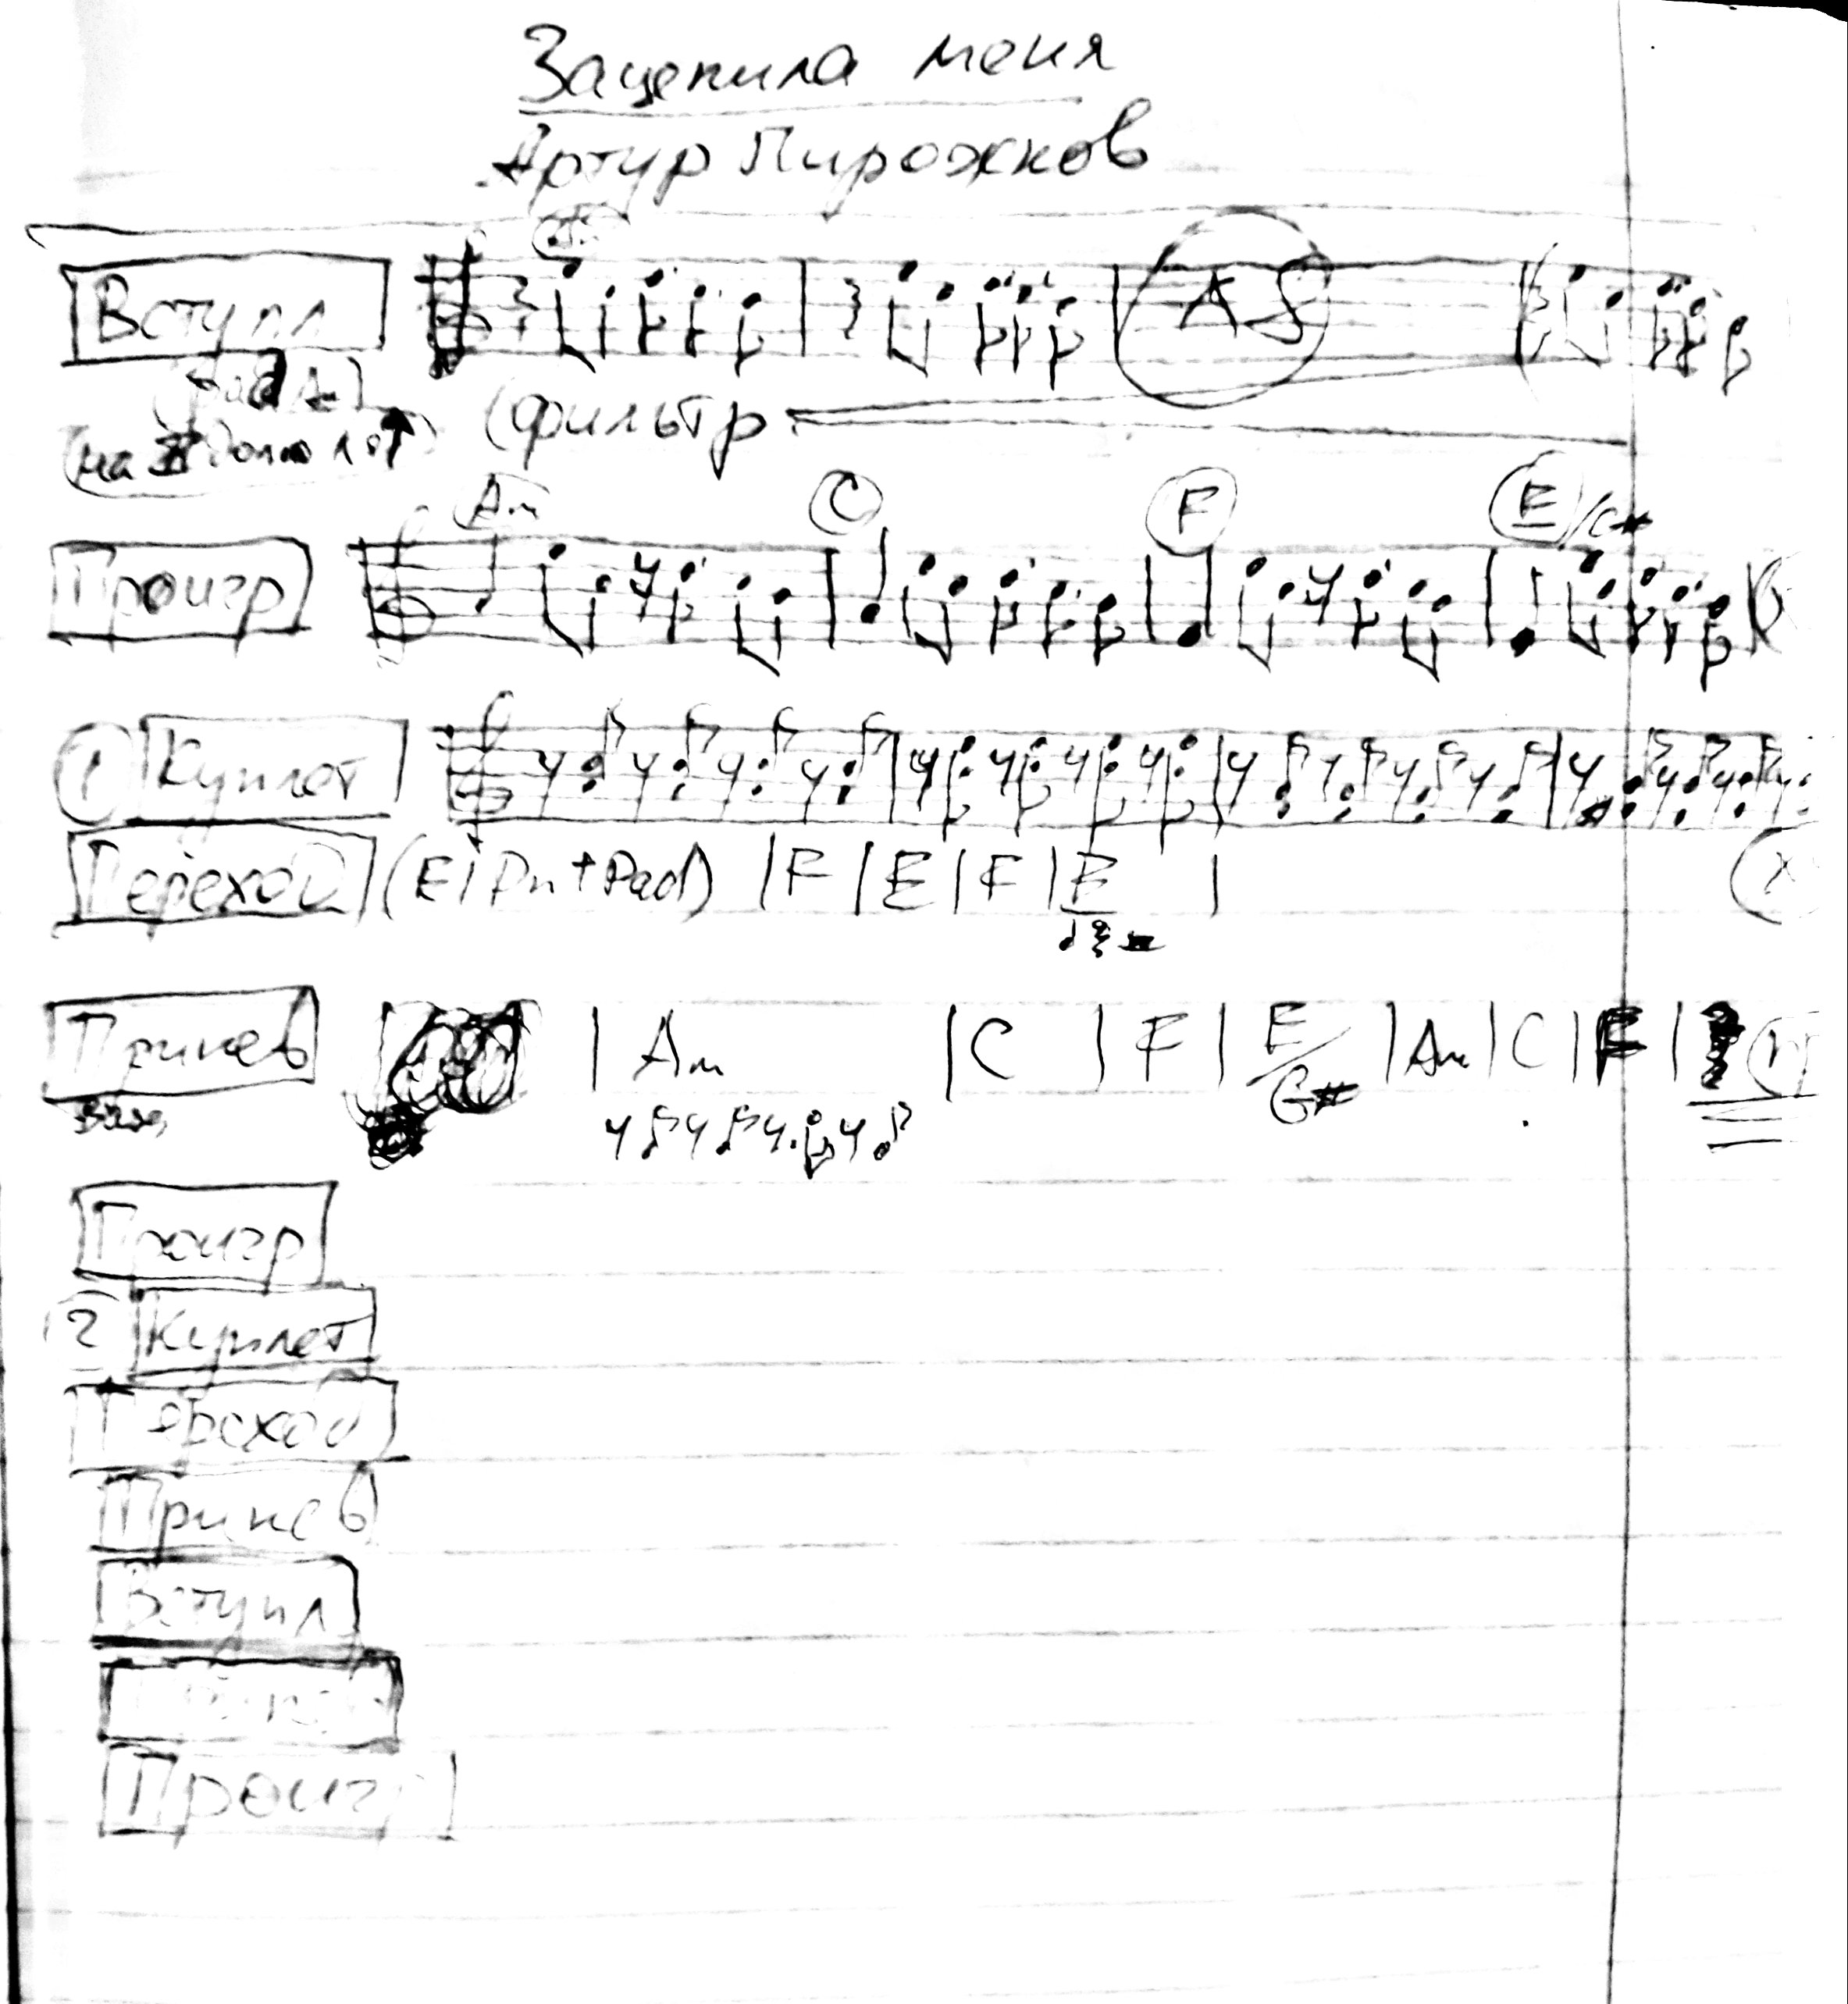 Зацепила меня
Артур Пирожков
Вступл
AS
(фильтр
Am C F E/G#
Проигр
1 Куплет
Переход (E Pn + Pad) | F | E | F | E |
Припев | Am | C | F | E/G# | Am | C | F |
Проигр
2 Куплет
Переход
Припев
Вступл
Проигр